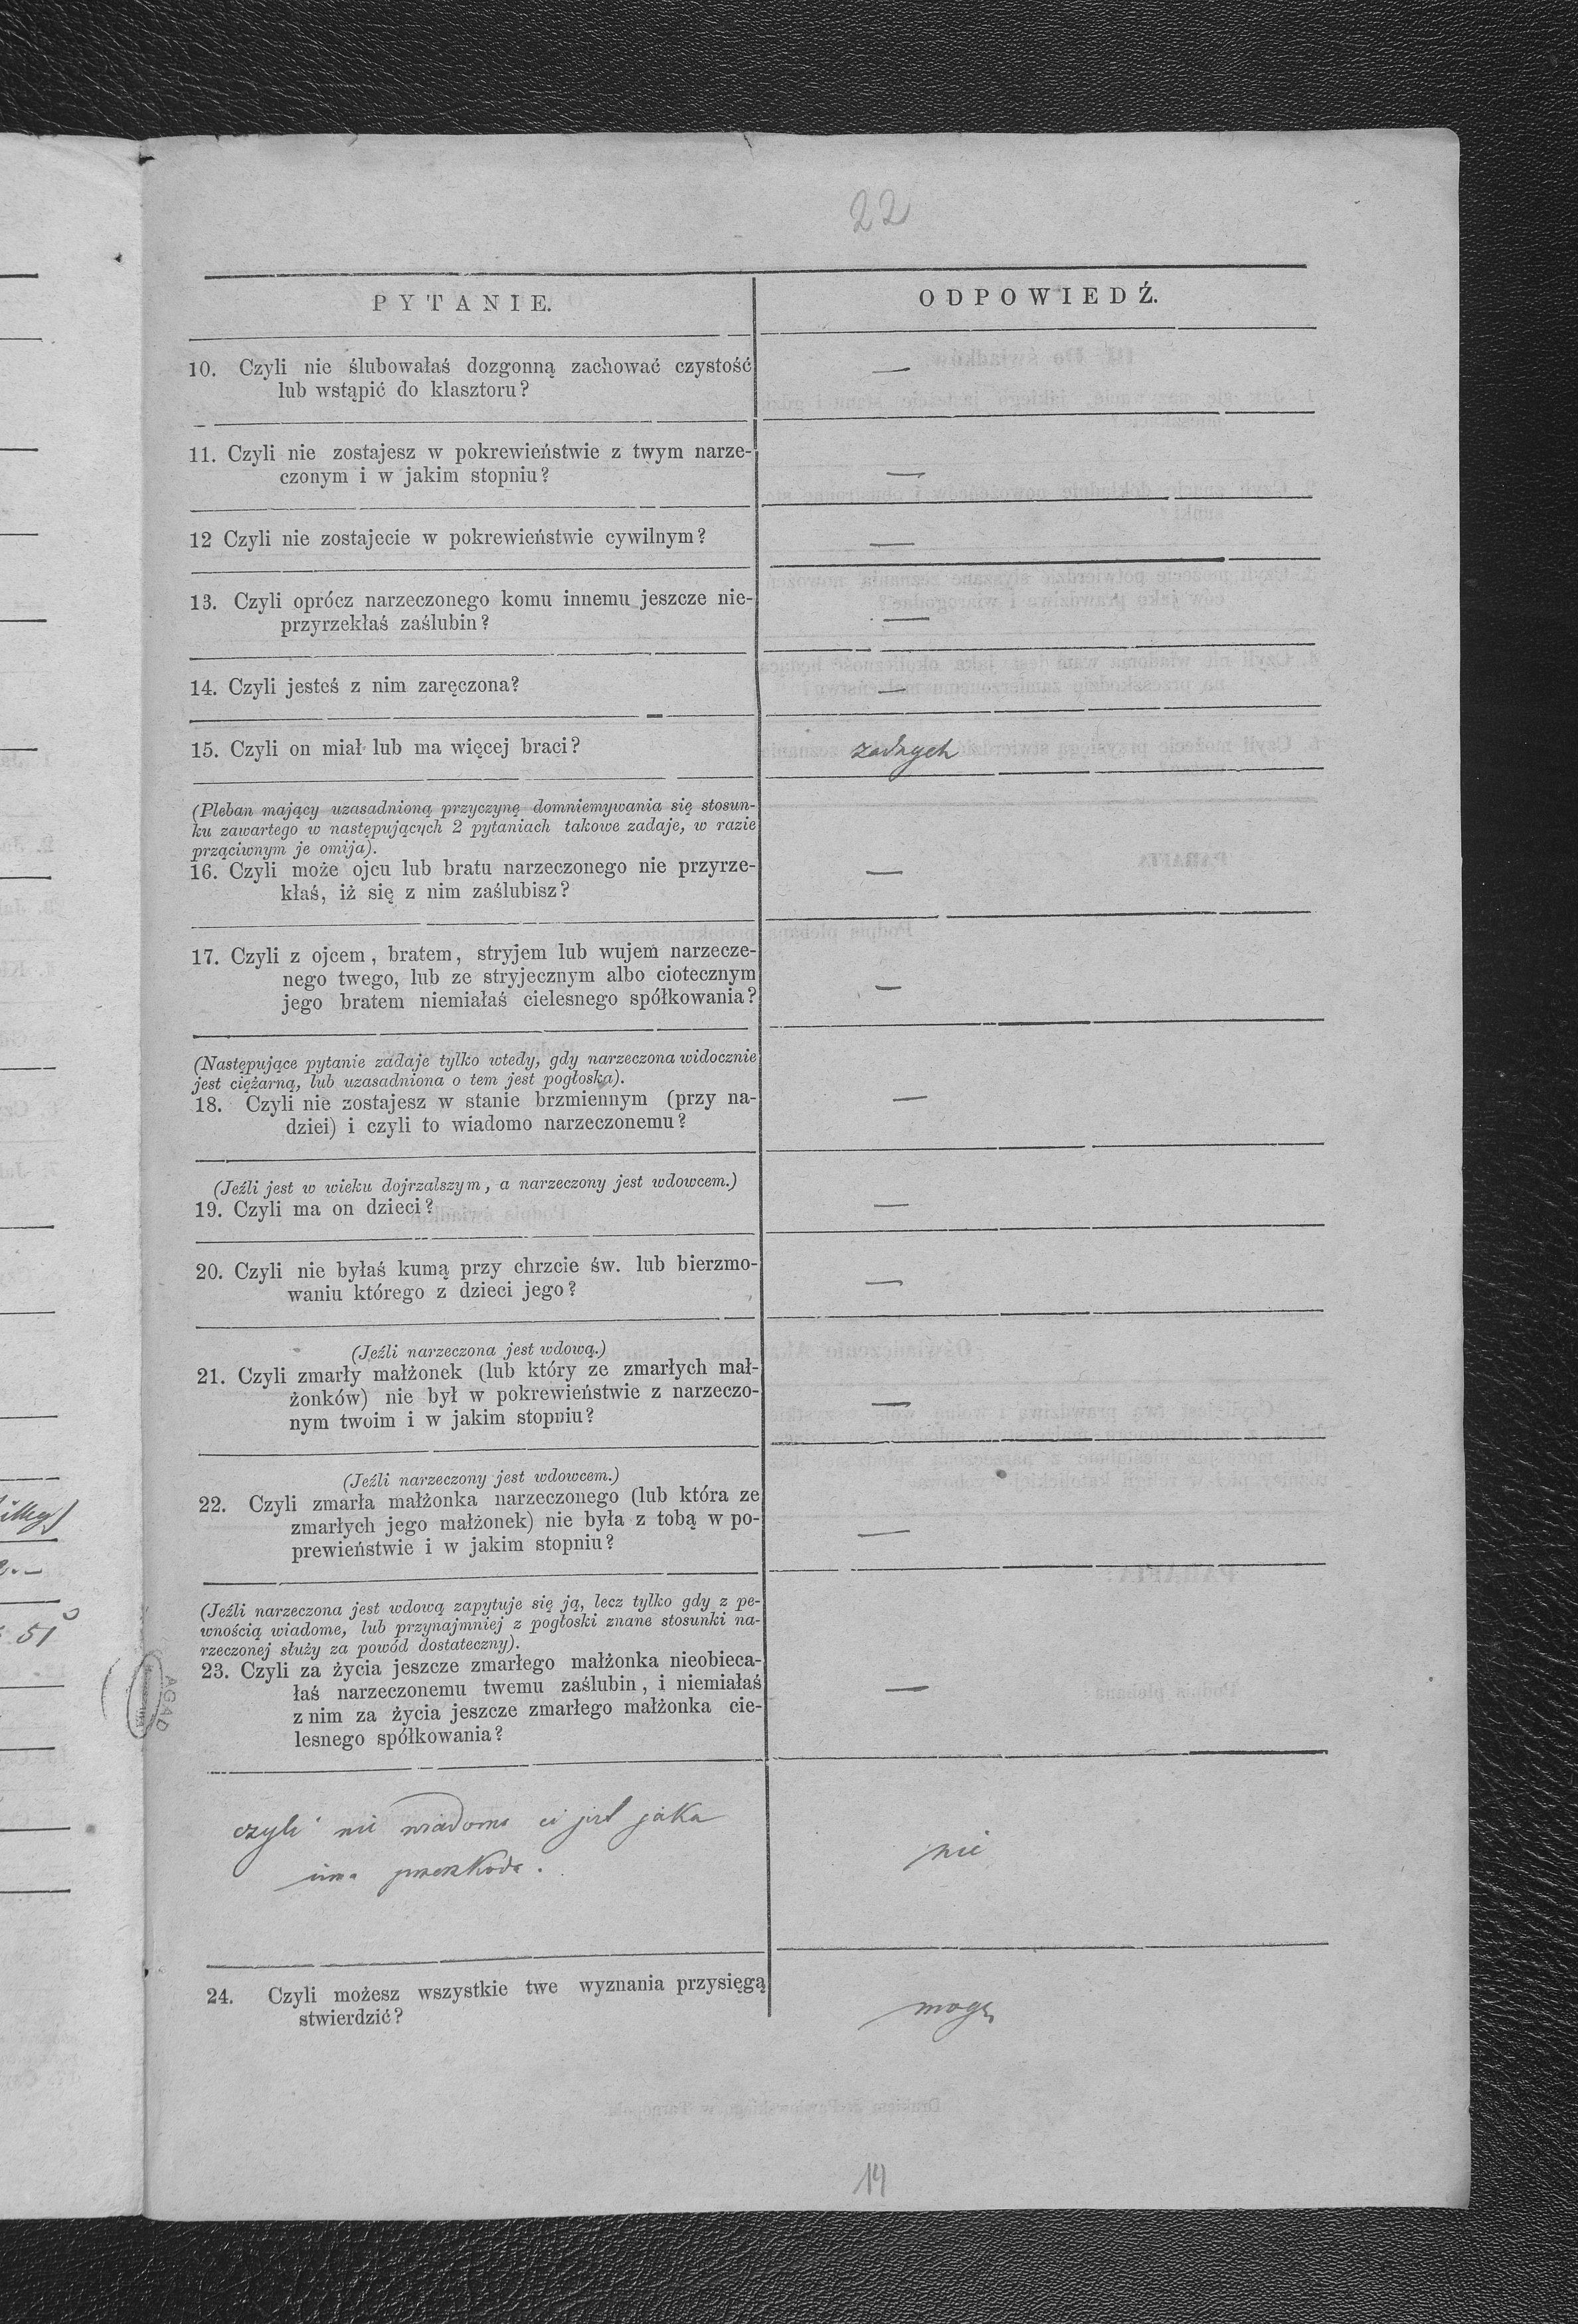 22
PYTANIE.
ODPOWIEDŹ.
10. Czyli nie ślubowałaś dozgonną zachować czystość
lub wstąpić do klasztoru?
—
11. Czyli nie zostajesz w pokrewieństwie z twym narze-
czonym i w jakim stopniu?
—
12 Czyli nie zostajecie w pokrewieństwie cywilnym?
—
13. Czyli oprócz narzeczonego komu innemu jeszcze nie-
przyrzekłaś zaślubin?
—
14. Czyli jesteś z nim zaręczona?
—
15. Czyli on miał lub ma więcej braci?
żadnych
(Pleban mający uzasadnioną przyczynę domniemywania się stosun-
ku zawartego w następujących 2 pytaniach takowe zadaje, w razie
prząciwnym je omija).
16. Czyli może ojcu lub bratu narzeczonego nie przyrze-
kłaś, iż się z nim zaślubisz?
—
17. Czyli z ojcem, bratem, stryjem lub wujem narzecze-
nego twego, lub ze stryjecznym albo ciotecznym
jego bratem niemiałaś cielesnego spółkowania?
—
(Następujące pytanie zadaje tylko wtedy, gdy narzeczona widocznie
jest ciężarną, lub uzasadniona o tem jest pogłoska).
18. Czyli nie zostajesz w stanie brzmiennym (przy na-
dziei) i czyli to wiadomo narzeczonemu?
—
(Jeźli jest w wieku dojrzalszym, a narzeczony jest wdowcem.)
19. Czyli ma on dzieci?
—
20. Czyli nie byłaś kumą przy chrzcie św. lub bierzmo-
waniu którego z dzieci jego?
—
(Jeźli narzeczona jest wdową.)
21. Czyli zmarły małżonek (lub który ze zmarłych mał-
żonków) nie był w pokrewieństwie z narzeczo-
nym twoim i w jakim stopniu?
—
(Jeźli narzeczony jest wdowcem.)
22. Czyli zmarła małżonka narzeczonego (lub która ze
zmarłych jego małżonek) nie była z tobą w po-
prewieństwie i w jakim stopniu?
—
(Jeźli narzeczona jest wdową zapytuje się ją, lecz tylko gdy z pe-
wnością wiadome, lub przynajmniej z pogłoski znane stosunki na-
rzeczonej służy za powód dostateczny).
23. Czyli za życia jeszcze zmarłego małżonka nieobieca-
łaś narzeczonemu twemu zaślubin, i niemiałaś
z nim za życia jeszcze zmarłego małżonka cie-
lesnego spółkowania?
—
czyli nie wiadomo ci jest jaka
inna przeszkoda.
nie
24. Czyli możesz wszystkie twe wyznania przysięgą
stwierdzić?
mogę
51
AGAD
14